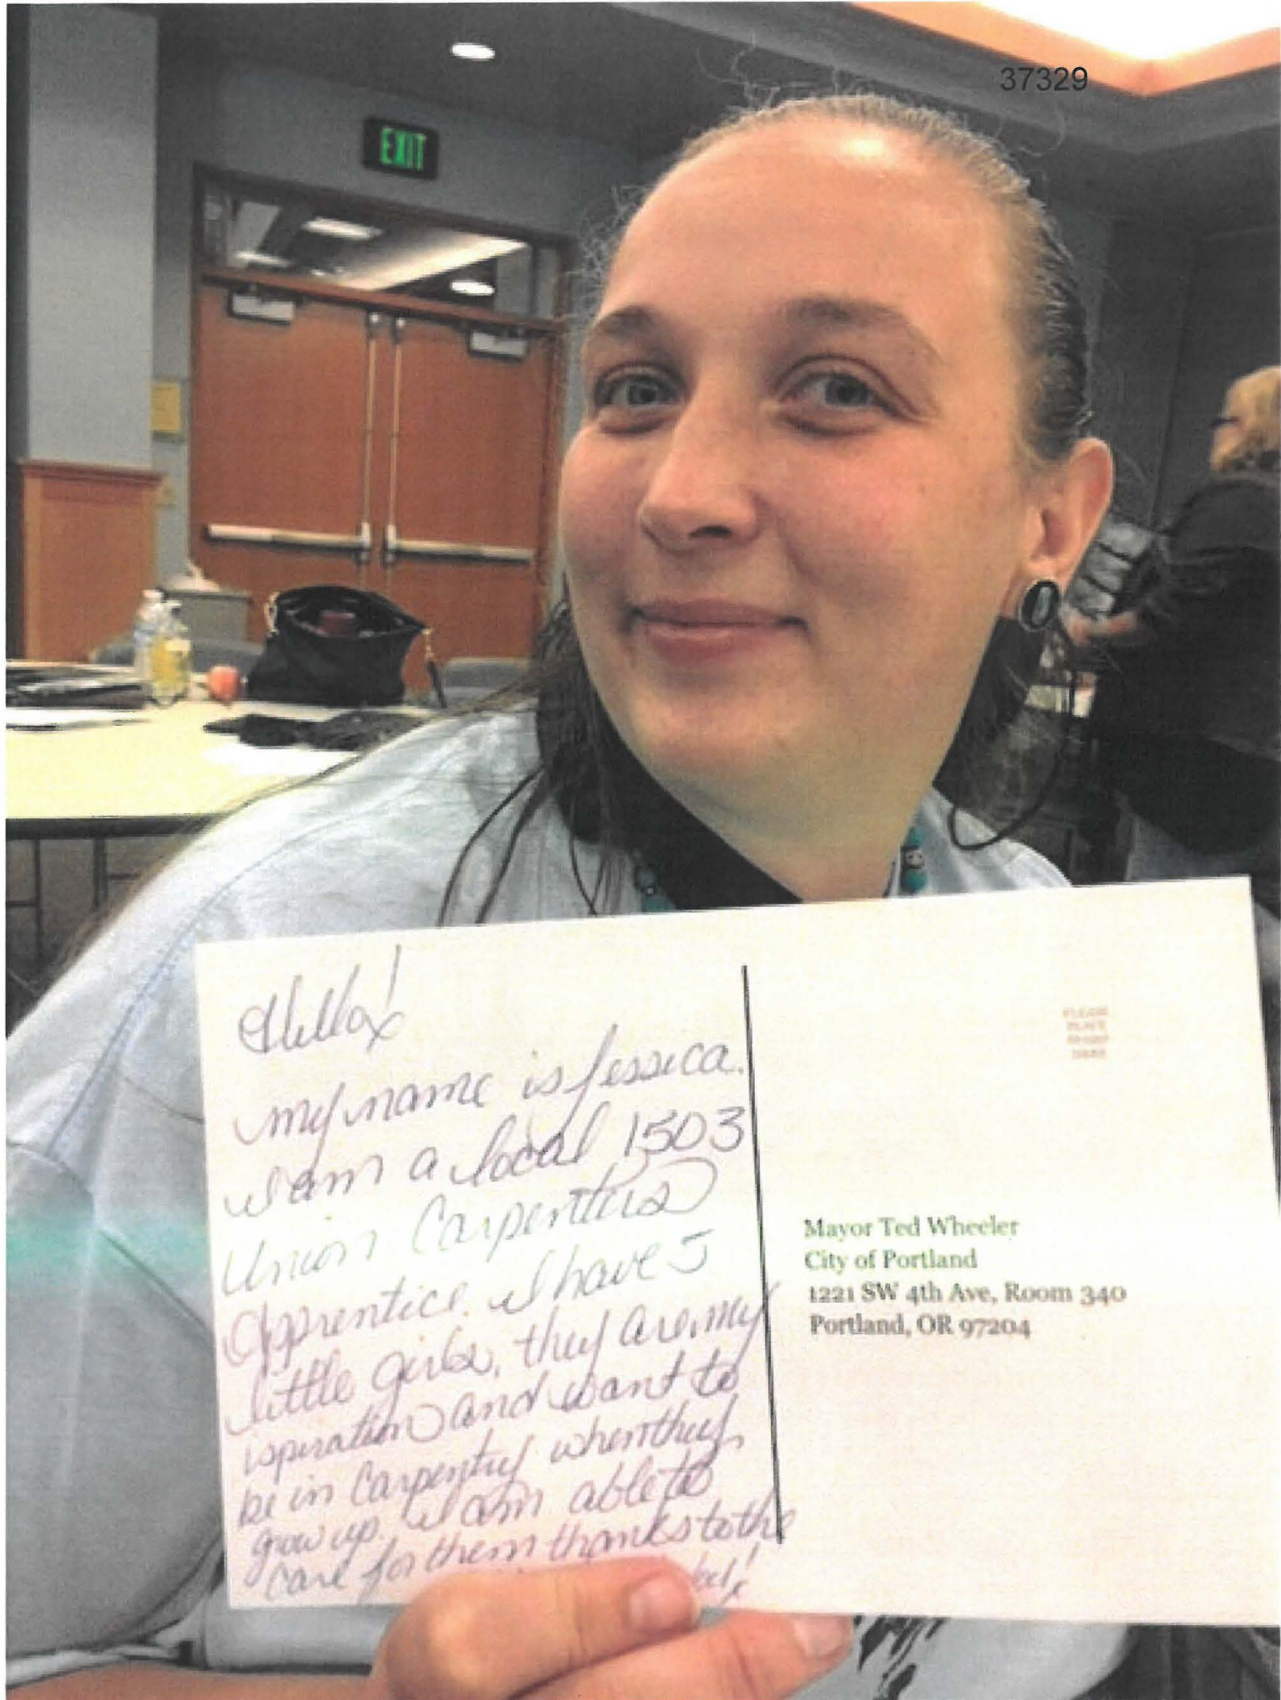 37329
EXIT
Hello!
my name is Jessica.
I am a local 1503
Union Carpenters
Apprentice. I have 5
little girls, they are my
ispiration and want to
be in Carpentry when they
grow up. I am able to
care for them thanks to the
PLEASE
PLACE
STAMP
HERE
Mayor Ted Wheeler
City of Portland
1221 SW 4th Ave, Room 340
Portland, OR 97204